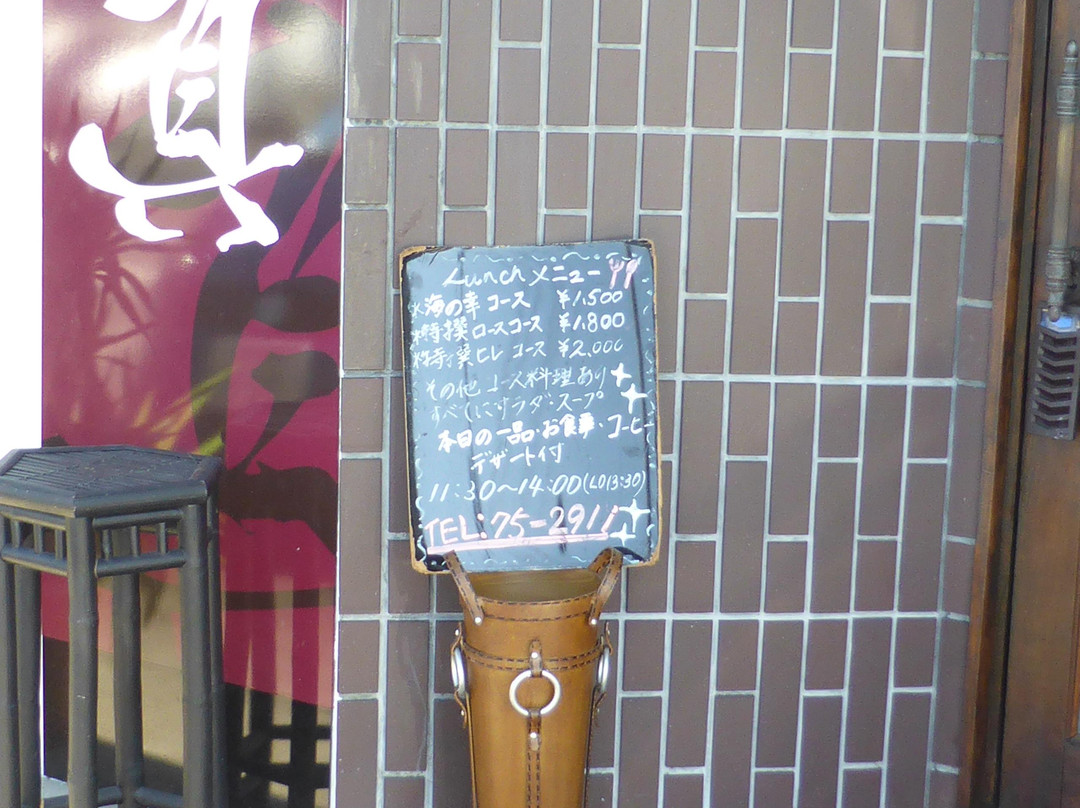 Lunch メニュー
海の幸 コース ¥1,500
特撰 ロースコース ¥1,800
特撰ヒレ コース ¥2,000
その他 コース料理あり
すべてにサラダ・スープ
本日の一品・お食事・コーヒー
デザート付
11:30〜14:00(LO13:30)
TEL:75-2911